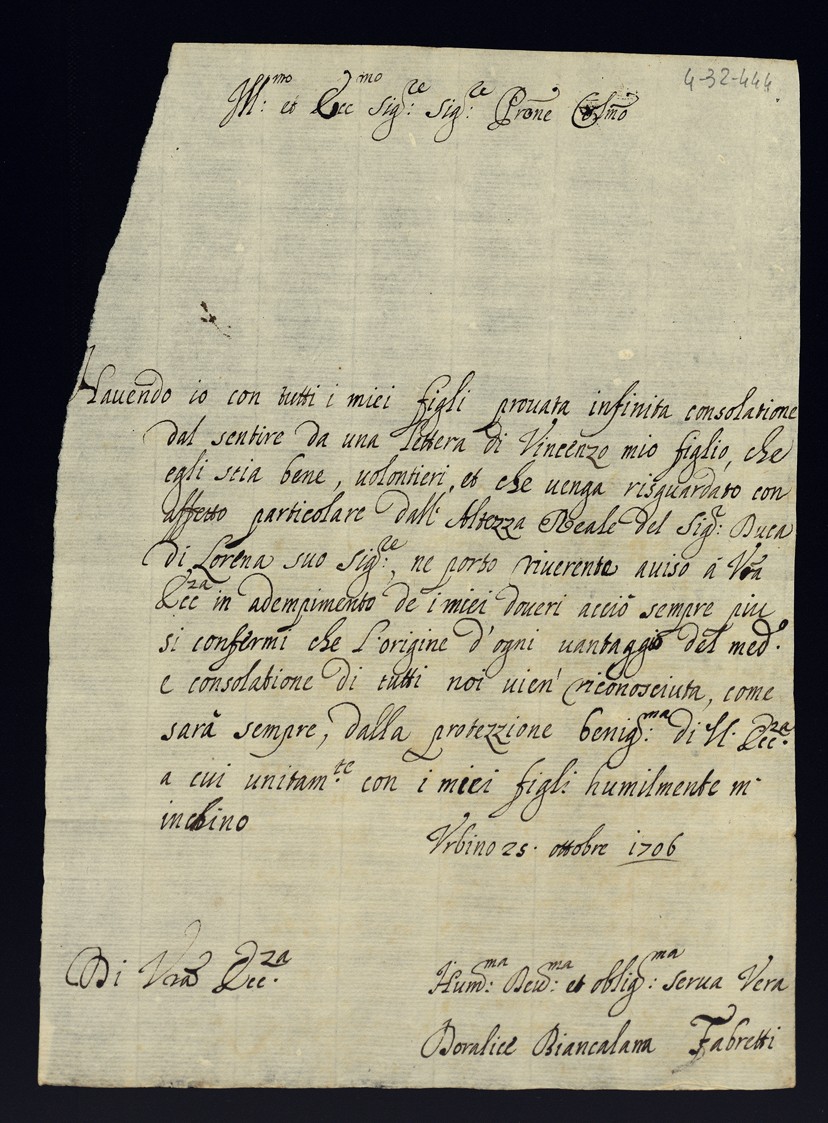 4-32-444
Ill:mo et Ecc.mo Sig:re Sig:re Prone Colmo
Havendo io con tutti i miei figli provata infinita consolatione
dal sentire da una lettera di Vincenzo mio figlio, che
egli stia bene, volontieri, et che venga risguardato con
affetto particolare dall' Altezza Reale del Sig:r Duca
di Lorena suo Sig:re, ne porto riverente aviso à Vra
Ecc.za in adempimento de i miei doveri acciò sempre piu
si confermi che l'origine d'ogni vantaggio del med.o
e consolatione di tutti noi vien' riconosciuta, come
sarà sempre, dalla protezzione benig:ma di V. Ecc.za
a cui unitam.te con i miei figli humilmente m'
inchino
Urbino 25. ottobre 1706
Di Vra Ecc.za
Hum:ma Dev:ma et oblig:ma serva Vera
Doralice Biancalana Fabretti